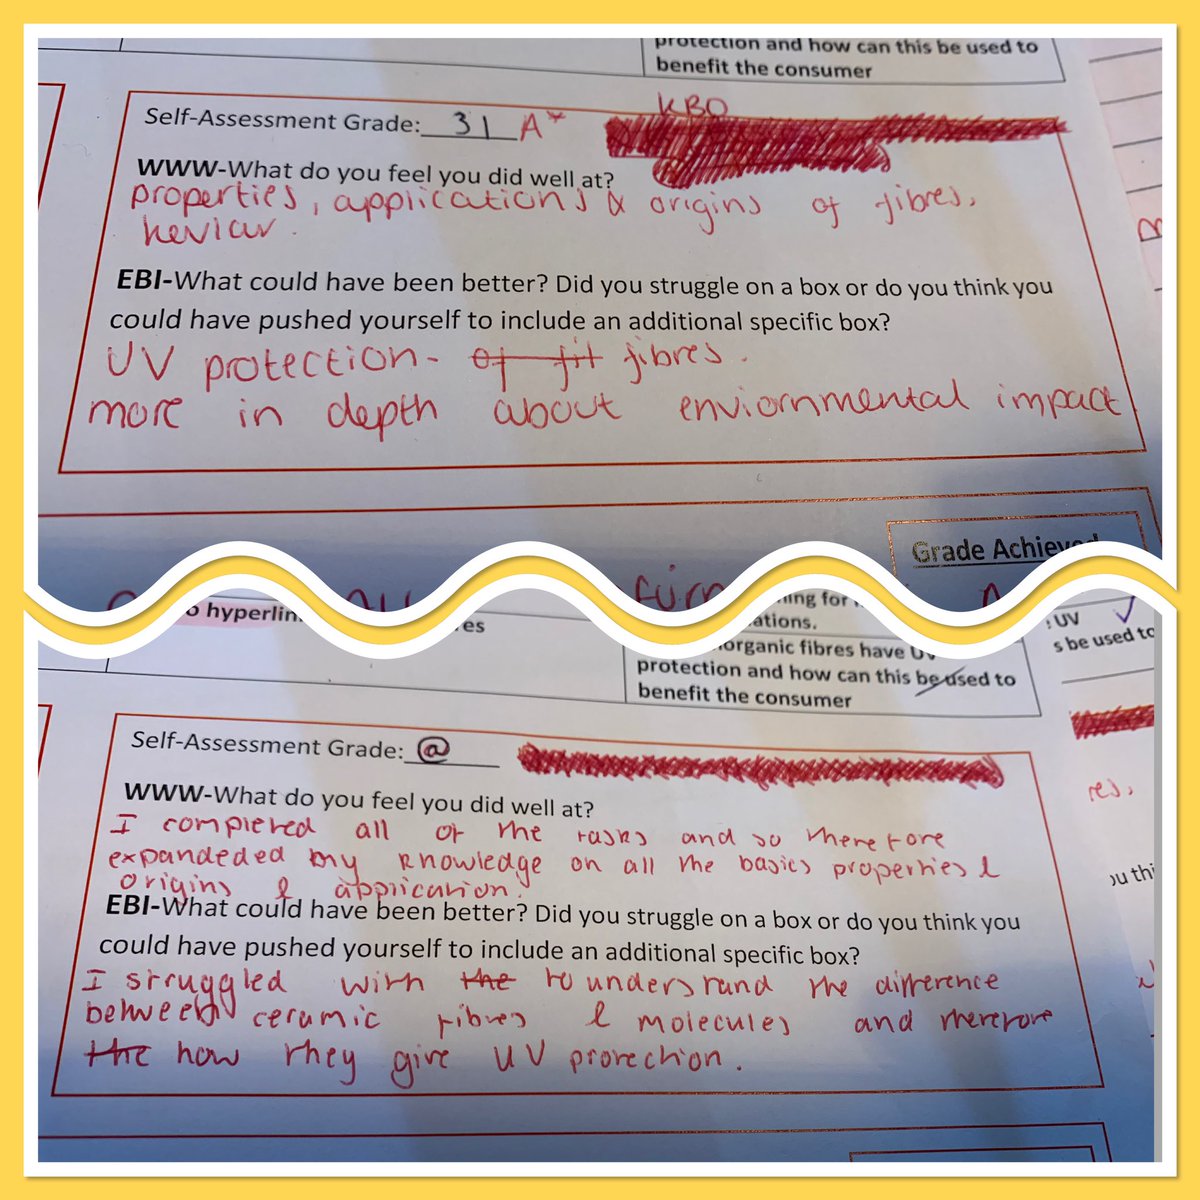 protection and how can this be used to
benefit the consumer
KBO
Self-Assessment Grade: 31 A*
WWW-What do you feel you did well at?
properties, applications & origins of fibres,
kevlar.
EBI-What could have been better? Did you struggle on a box or do you think you
could have pushed yourself to include an additional specific box?
UV protection- of fit fibres.
more in depth about enviornmental impact
Grade Achieved
hyperlin
es
ing for
ations.
organic fibres have UV
protection and how can this be used to
benefit the consumer
UV
s be used to
Self-Assessment Grade: @
WWW-What do you feel you did well at?
I completed all of the tasks and so therefore
expandeded my knowledge on all the basics properties &
origins & application.
EBI-What could have been better? Did you struggle on a box or do you think you
could have pushed yourself to include an additional specific box?
I struggled with the to understand the difference
between ceramic fibres & molecules and therefore
the how they give UV protection.
res,
ou thi